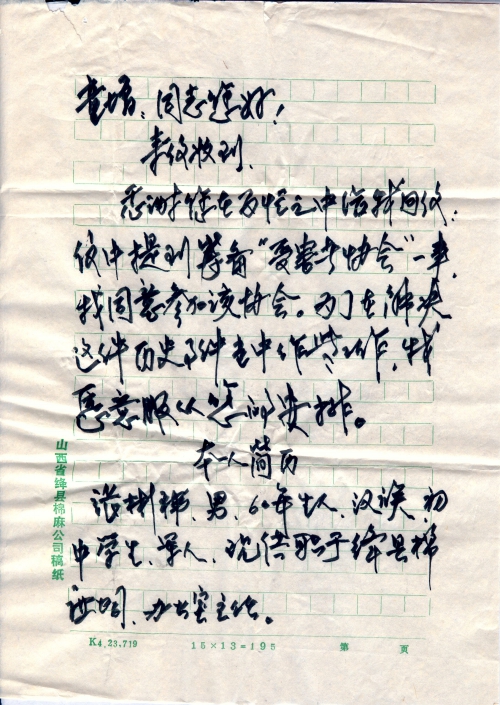 同志您好!
来信收到,
感谢您在百忙之中给我回信,
信中提到筹备“受害者协会”一事,
我同意参加该协会。为了在解决
这件历史事件当中作些工作,我
愿意服从您的安排。
本人简历
张彬彬,男,60年生人,汉族,初
中学生,军人,现供职于绛县棉
麻公司,办公室主任。
山西省绛县棉麻公司稿纸
K4.23.719 15×13=195 第 页